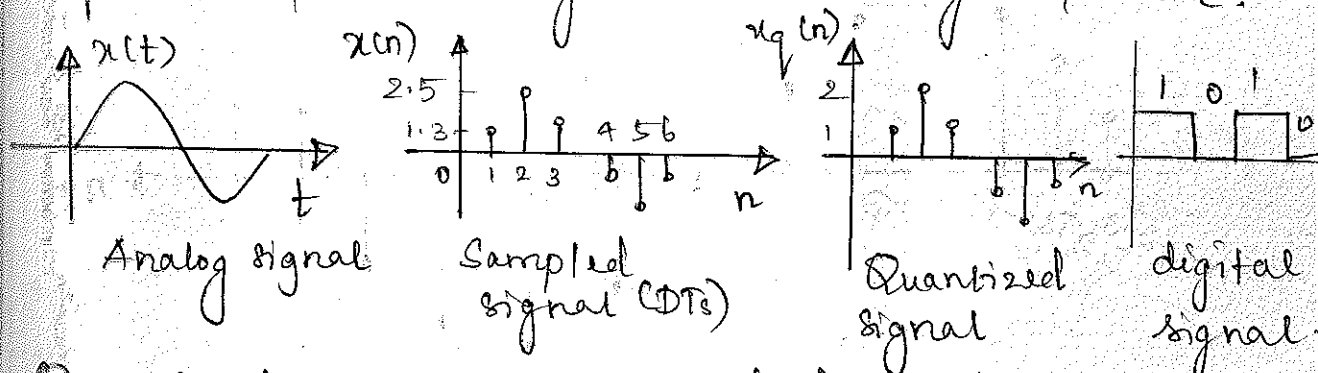 x(t)
t
Analog signal
x(n)
2.5
1.3
0 1 2 3 4 5 6
n
Sampled
signal (DTS)
xq (n)
2
1
n
Quantized
signal
1 0 1 0
digital
signal